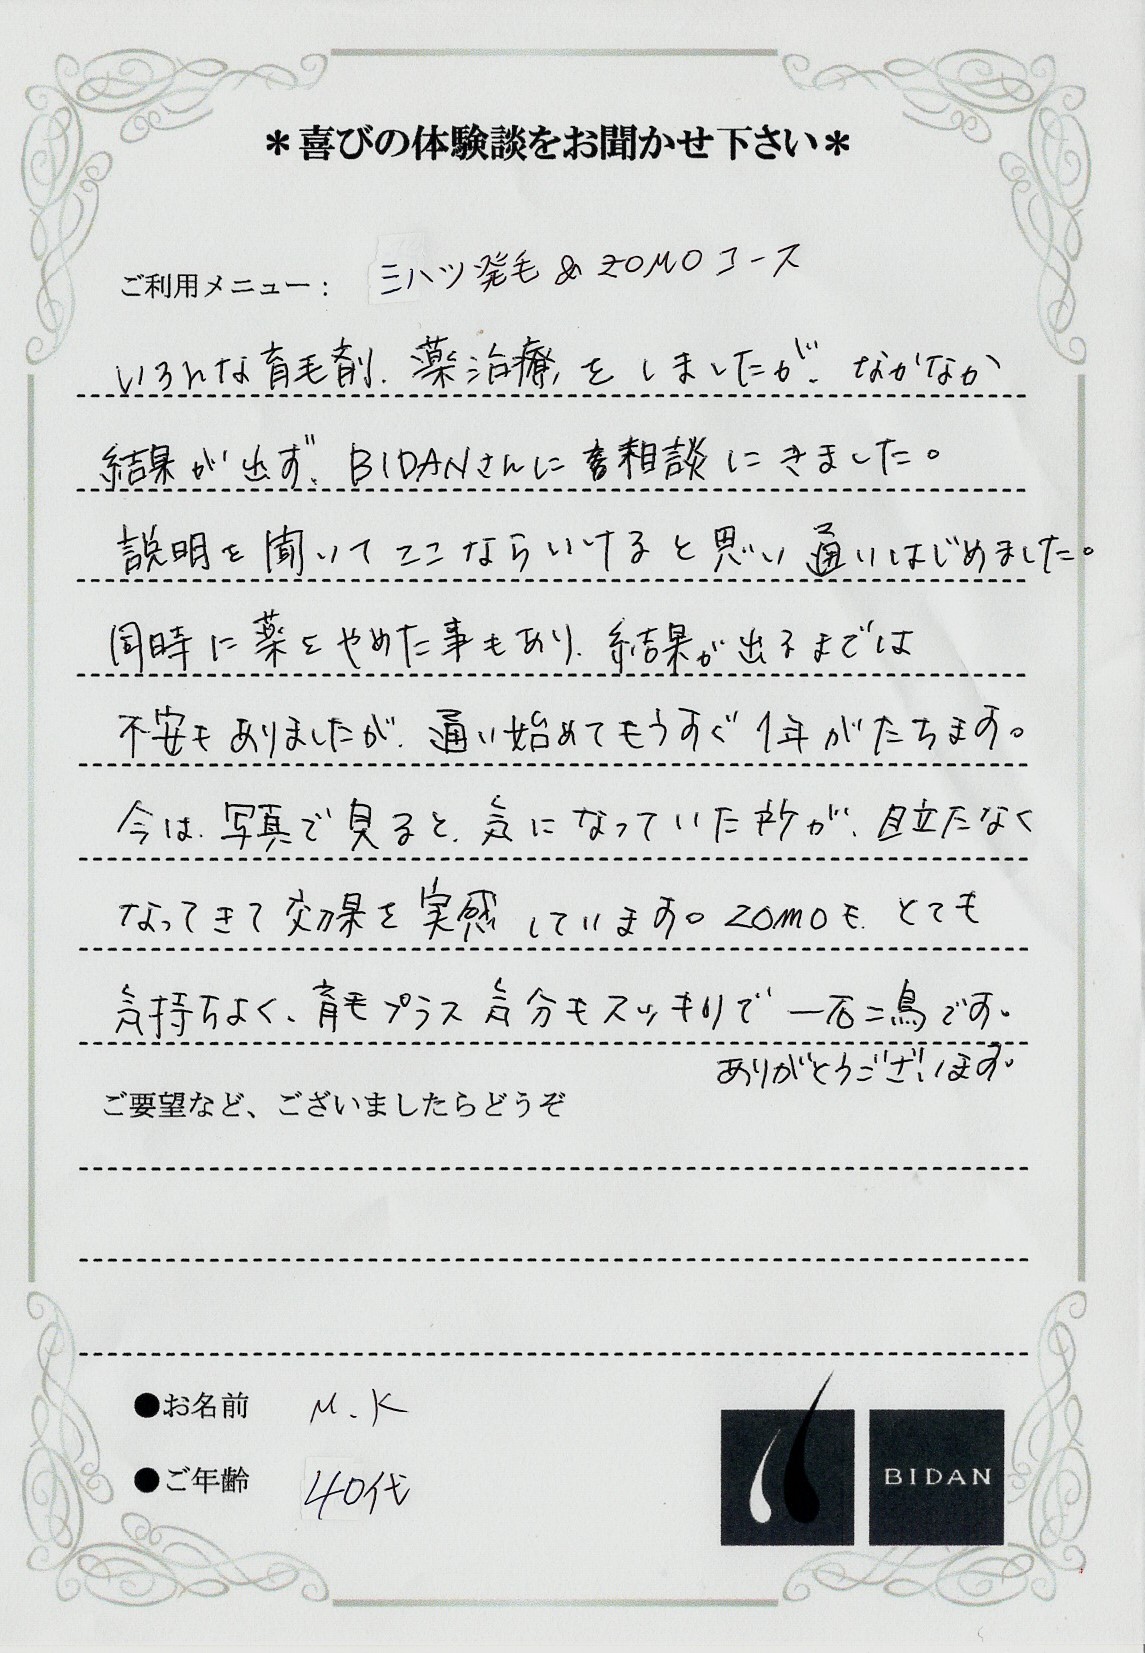 ＊喜びの体験談をお聞かせ下さい＊
ご利用メニュー： ミハツ発毛&ZOMOコース
いろんな育毛剤、薬治療をしましたが、なかなか
結果が出ず、BIDANさんに相談にきました。
説明を聞いてここならいけると思い通いはじめました。
同時に薬をやめた事もあり、結果が出るまでは
不安もありましたが、通い始めてもうすぐ1年がたちます。
今は、写真で見ると、気になっていた所が、目立たなく
なってきて効果を実感しています。ZOMOも、とても
気持ちよく、育毛プラス気分もスッキリで一石二鳥です。
ありがとうございます。
ご要望など、ございましたらどうぞ
●お名前 M.K
●ご年齢 40代
BIDAN